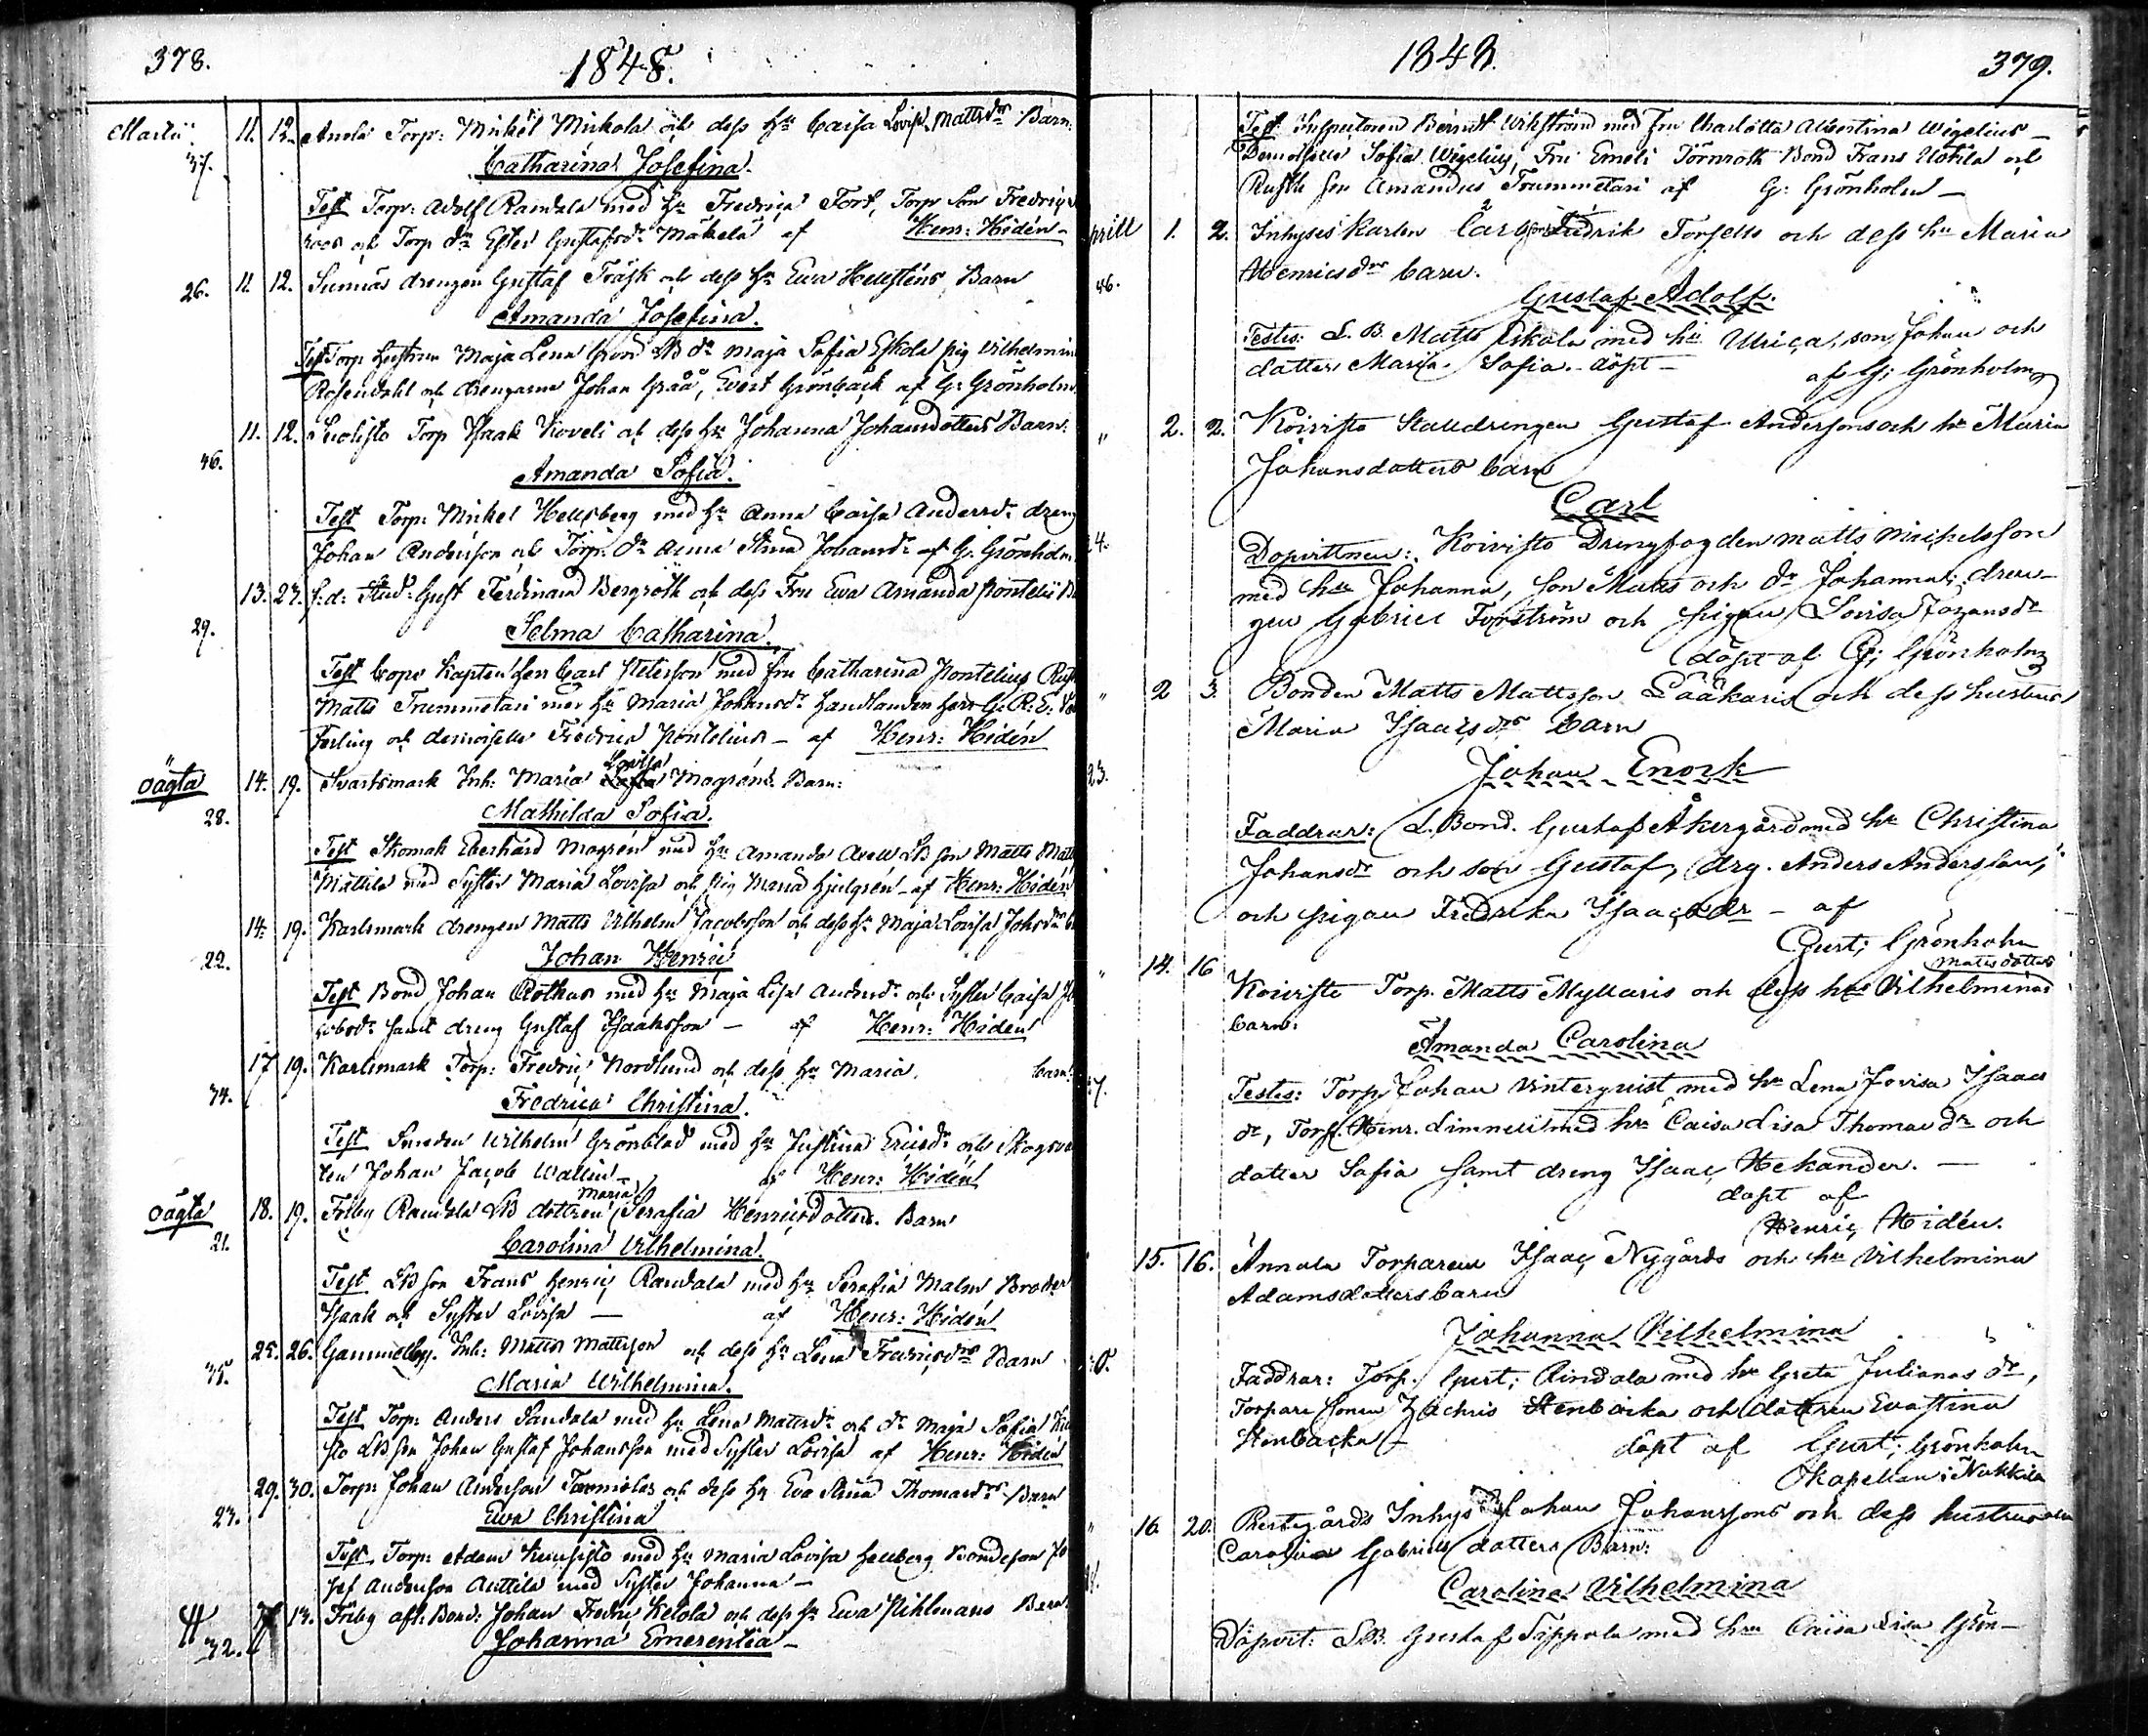 378.
1848.
Martii 11. 12. Anola Torp: Mickel Mickola och dess Hu Caisa Lovisa Mattsdrs Barn:
37. Catharina Josefina.
Test Torp: Adolf Randala med Hu Fredrica Fors, Torp Son Fredric
och Torp dr Ester Gustafsdr Mäkelä af Henr: Hidén
26. 11 12. Sunnäs drengen Gustaf Träsk och dess Hu Ewa Hellsténs Barn
Amanda Josefina.
Test Torp hustrun Maja Lena Grund LB dr Maja Sofia Eskola pig Vilhelmina
Rosendahl och drengarne Johan Gråå, Evert Grönback af G: Grönholm
11. 12. Torp Isaak Koveli och dess Hu Johanna Johansdotters Barn:
46. Amanda Sofia.
Test Torp: Mickel Hellsberg med Hu Anna Caisa Andersdr dreng
Johan Anderson och Torp: dr Anna Stina Johansdr af G. Grönholm
13. 23. f.d. Stud: Gust Ferdinand Bergroth och dess Fru Ewa Amanda Pontelii
29. Selma Catharina.
Test Cope Kapten Herr Carl Peterson med Fru Catharina Pontelius
Matts Trummetari med Hu Maria Johansdr Handlanden Herr G: R: E:
och demoiselle Fredrica Pontelius – af Henr: Hidén
oägta 14. 19. Svartsmark Inh: Maria Lovisa Magréns Barn:
28. Mathilda Sofia.
Test Skomak Eberhard Magrén med Hu Amanda Axell LB son Matts
Mattila med Syster Maria Lovisa och pig Maria Hjelgrén – af Henr: Hidén
14. 19. Karlsmark drengen Matts Vilhelm Jacobsson och dess Hu Maja Lovisa Johsdrs
22. Johan Henric
Test Bond Johan Rothus med Hu Maja Lisa Andersdr och Syster Caisa
cobsdr samt dreng Gustaf Isaaksson – af Henr: Hidén
17 19. Karlsmark Torp: Fredric Nordlund och dess Hu Maria. Barn:
34. Fredrica Christina.
Test Smeden Wilhelm Grönblad med Hu Justina Ericsdr och Skogsva
ten Johan Jacob Wallin – af Henr: Hidén
oägta 18. 19. Friby Randala LB dottren Maria Serafia Henricsdotters Barn
21. Carolina Vilhelmina.
Test LB son Frans Henric Randala med Hu Serafia Malm Broder
Isaak och Syster Lovisa — af Henr: Hidén
25. 26. Gammelby. Inh: Matts Mattsson och dess Hu Lena Fransdrs Barn
35. Maria Wilhelmina.
Test Torp: Anders Sandala med Hu Lena Mattsdr och dr Maja Sofia
sto LB son Johan Gustaf Johansson med Syster Lovisa af Henr: Hidén
29. 30. Torp: Johan Anderson och dess Hu Eva Stina Thomasdrs Barn
23. Ewa Christina
Test Torp: Adam Kuusisto med Hu Maria Lovisa Hellberg Bondeson Jo
sef Anderson Anttila med Syster Johanna –
13. Friby aft: Bond: Johan Fredric Ketola och dess Hu Ewa Pihlmans Barn
32. Johanna Emerentia –
1848.
379.
Test Inspectoren Berndt Wikström med Fru Charlotta Albertina Wigelius –
Demoiselle Sofia Wigelius, Fru Emeli Törnroth Bond Frans Uotila och
Rusth son Amandus Trummetari af G: Grönholm –
prill 1. 2. Inhyses Karlen Carl Fredrik Torsells och dess hu Maria
46. Henricsdrs barn.
Gustaf Adolf.
Testes: L. B. Matts Eskola med hu Ulrica, son Johan och
datter Maria Sofia – döpt – af G: Grönholm
" 2. 2. Koivisto Stalldrengen Gustaf Andersons och hu Maria
Johansdatters barn
Carl
24. Dopvittnen: Koivisto Drengfogden Matts Michelsson
med hu Johanna, son Matts och dr Johanna; dren-
gen Gabriel Forström och pigan Lovisa Johansdr
döpt af G: Grönholm
" 2 3. Bonden Matts Mattsson Lääkaris och dess hustrus
Maria Isaacsdrs barn
23. Johan Enock
Faddrar: L. Bond. Gustaf Åkergård med hu Christina
Johansdr och son Gustaf, drg. Anders Anderson,
och pigan Fredrika Isaacsdr – af
Gust: Grönholm
" 14. 16 Koivisto Torp. Matts Myllaris och dess hus Vilhelminas Mattsdotters
barn:
Amanda Carolina
37. Testes: Torp. Johan Vinterqvist med hu Lena Lovisa Isaacs
dr, Torp. Henr. Limnell med hu Caisa Lisa Thomasdr och
datter Sofia samt dreng Isaac Hekander. —
döpt af
Henric Hidén.
15. 16. Annala Torparen Isaac Nygårds och hu Vilhelmina
Adamsdatters barn
Johanna Vilhelmina
Faddrar: Torp. Gust: Rindala med hu Greta Julianas dr,
Torpare sonen Zachris Stenbacka och dattren Eva Stina
Stenbacka – döpt af Gust: Grönholm
Kapellan i Nukkila
" 16. 20. Prestgårds Inhys Johan Johanssons och dess hustrus
Carolina Gabriels datters Barn:
Carolina Vilhelmina
Döpvit: LB. Gustaf Sippola med hru Caisa Lisa Grön-